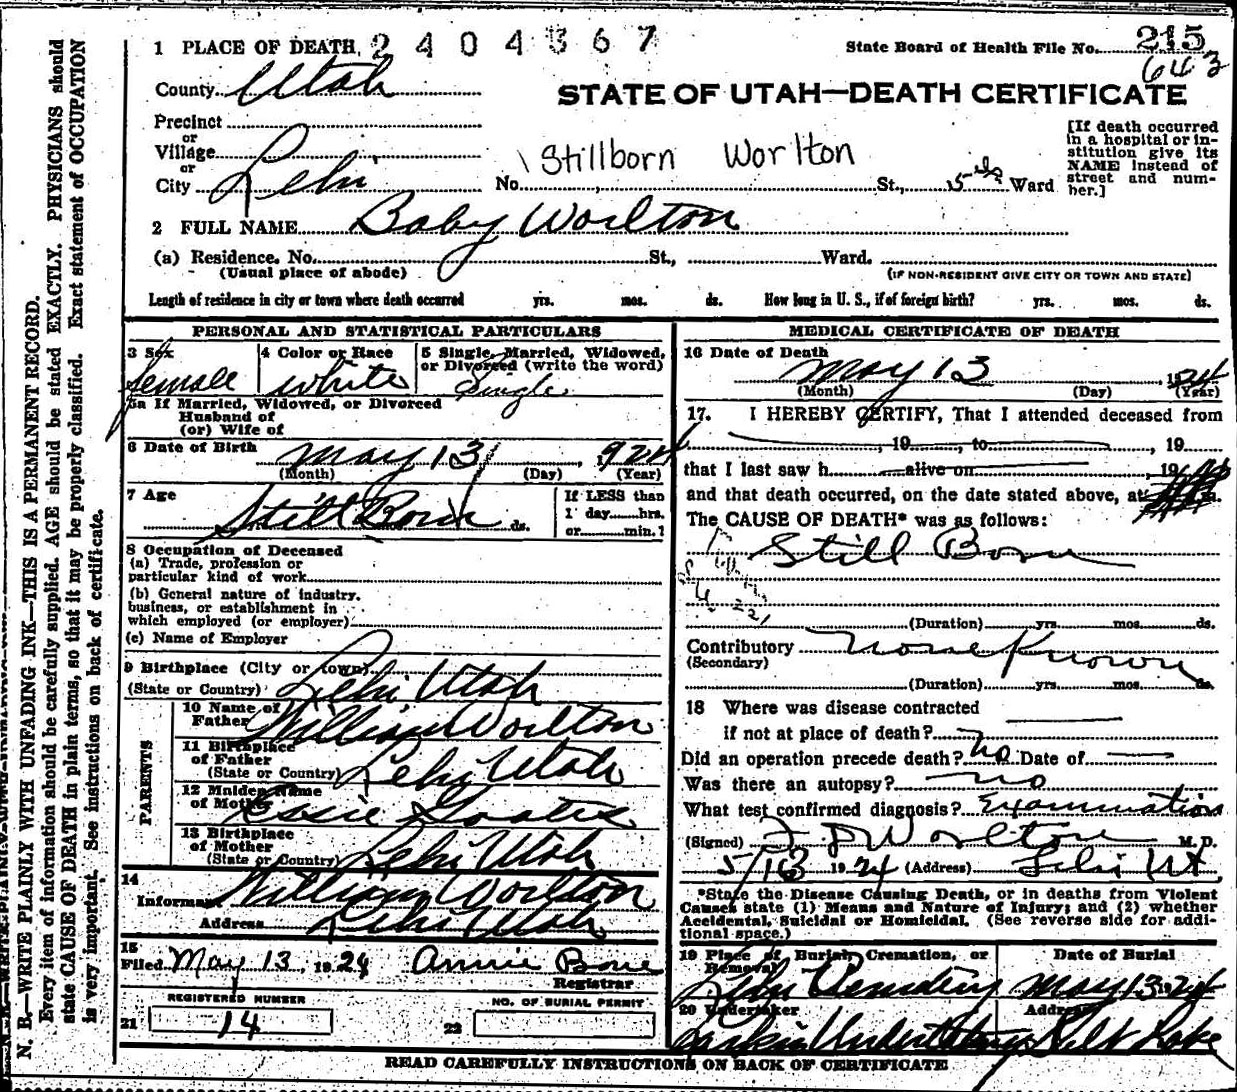 1 PLACE OF DEATH 2404367
State Board of Health File No. 215
643
County Utah
STATE OF UTAH—DEATH CERTIFICATE
Precinct
or
Village
or
City Lehi
Stillborn Worlton
No. St., 5th Ward
[If death occurred
in a hospital or in-
stitution give its
NAME instead of
street and num-
ber.]
2 FULL NAME Baby Worlton
(a) Residence. No. St., Ward.
(Usual place of abode)
(IF NON-RESIDENT GIVE CITY OR TOWN AND STATE)
Length of residence in city or town where death occurred yrs. mos. ds. How long in U. S., if of foreign birth? yrs. mos. ds.
PERSONAL AND STATISTICAL PARTICULARS
3 Sex
female
4 Color or Race
white
5 Single, Married, Widowed,
or Divorced (write the word)
Single
5a If Married, Widowed, or Divorced
Husband of
(or) Wife of
6 Date of Birth May 13, 1924
(Month) (Day) (Year)
7 Age
Still Born ds.
If LESS than
1 day hrs.
or min.?
8 Occupation of Deceased
(a) Trade, profession or
particular kind of work
(b) General nature of industry,
business, or establishment in
which employed (or employer)
(c) Name of Employer
9 Birthplace (City or town)
(State or Country) Lehi Utah
PARENTS
10 Name of
Father William Worlton
11 Birthplace
of Father
(State or Country) Lehi Utah
12 Maiden Name
of Mother Essie Goates
13 Birthplace
of Mother
(State or Country) Lehi Utah
14
Informant William Worlton
Address Lehi Utah
15
Filed May 13, 1924 Annie Bone
Registrar
REGISTERED NUMBER
21 14
NO. OF BURIAL PERMIT
22
MEDICAL CERTIFICATE OF DEATH
16 Date of Death
May 13 1924
(Month) (Day) (Year)
17. I HEREBY CERTIFY, That I attended deceased from
, 19 , to , 19
that I last saw h alive on , 19
and that death occurred, on the date stated above, at m.
The CAUSE OF DEATH* was as follows:
Still Born
(Duration) yrs. mos. ds.
Contributory None Known
(Secondary)
(Duration) yrs. mos. ds.
18 Where was disease contracted
if not at place of death?
Did an operation precede death? no Date of
Was there an autopsy? no
What test confirmed diagnosis? Examination
(Signed) Worlton M.D.
5/13 1924 (Address) Lehi Ut.
*State the Disease Causing Death, or in deaths from Violent
Causes state (1) Means and Nature of Injury; and (2) whether
Accidental, Suicidal or Homicidal. (See reverse side for addi-
tional space.)
19 Place of Burial, Cremation, or
Removal
Lehi Cemetery
Date of Burial
May 13 24
20 Undertaker
Larkin Undertaking
Address
Salt Lake
READ CAREFULLY INSTRUCTIONS ON BACK OF CERTIFICATE
N. B.—WRITE PLAINLY WITH UNFADING INK—THIS IS A PERMANENT RECORD.
Every item of information should be carefully supplied. AGE should be stated EXACTLY. PHYSICIANS should
state CAUSE OF DEATH in plain terms, so that it may be properly classified. Exact statement of OCCUPATION
is very important. See instructions on back of certificate.